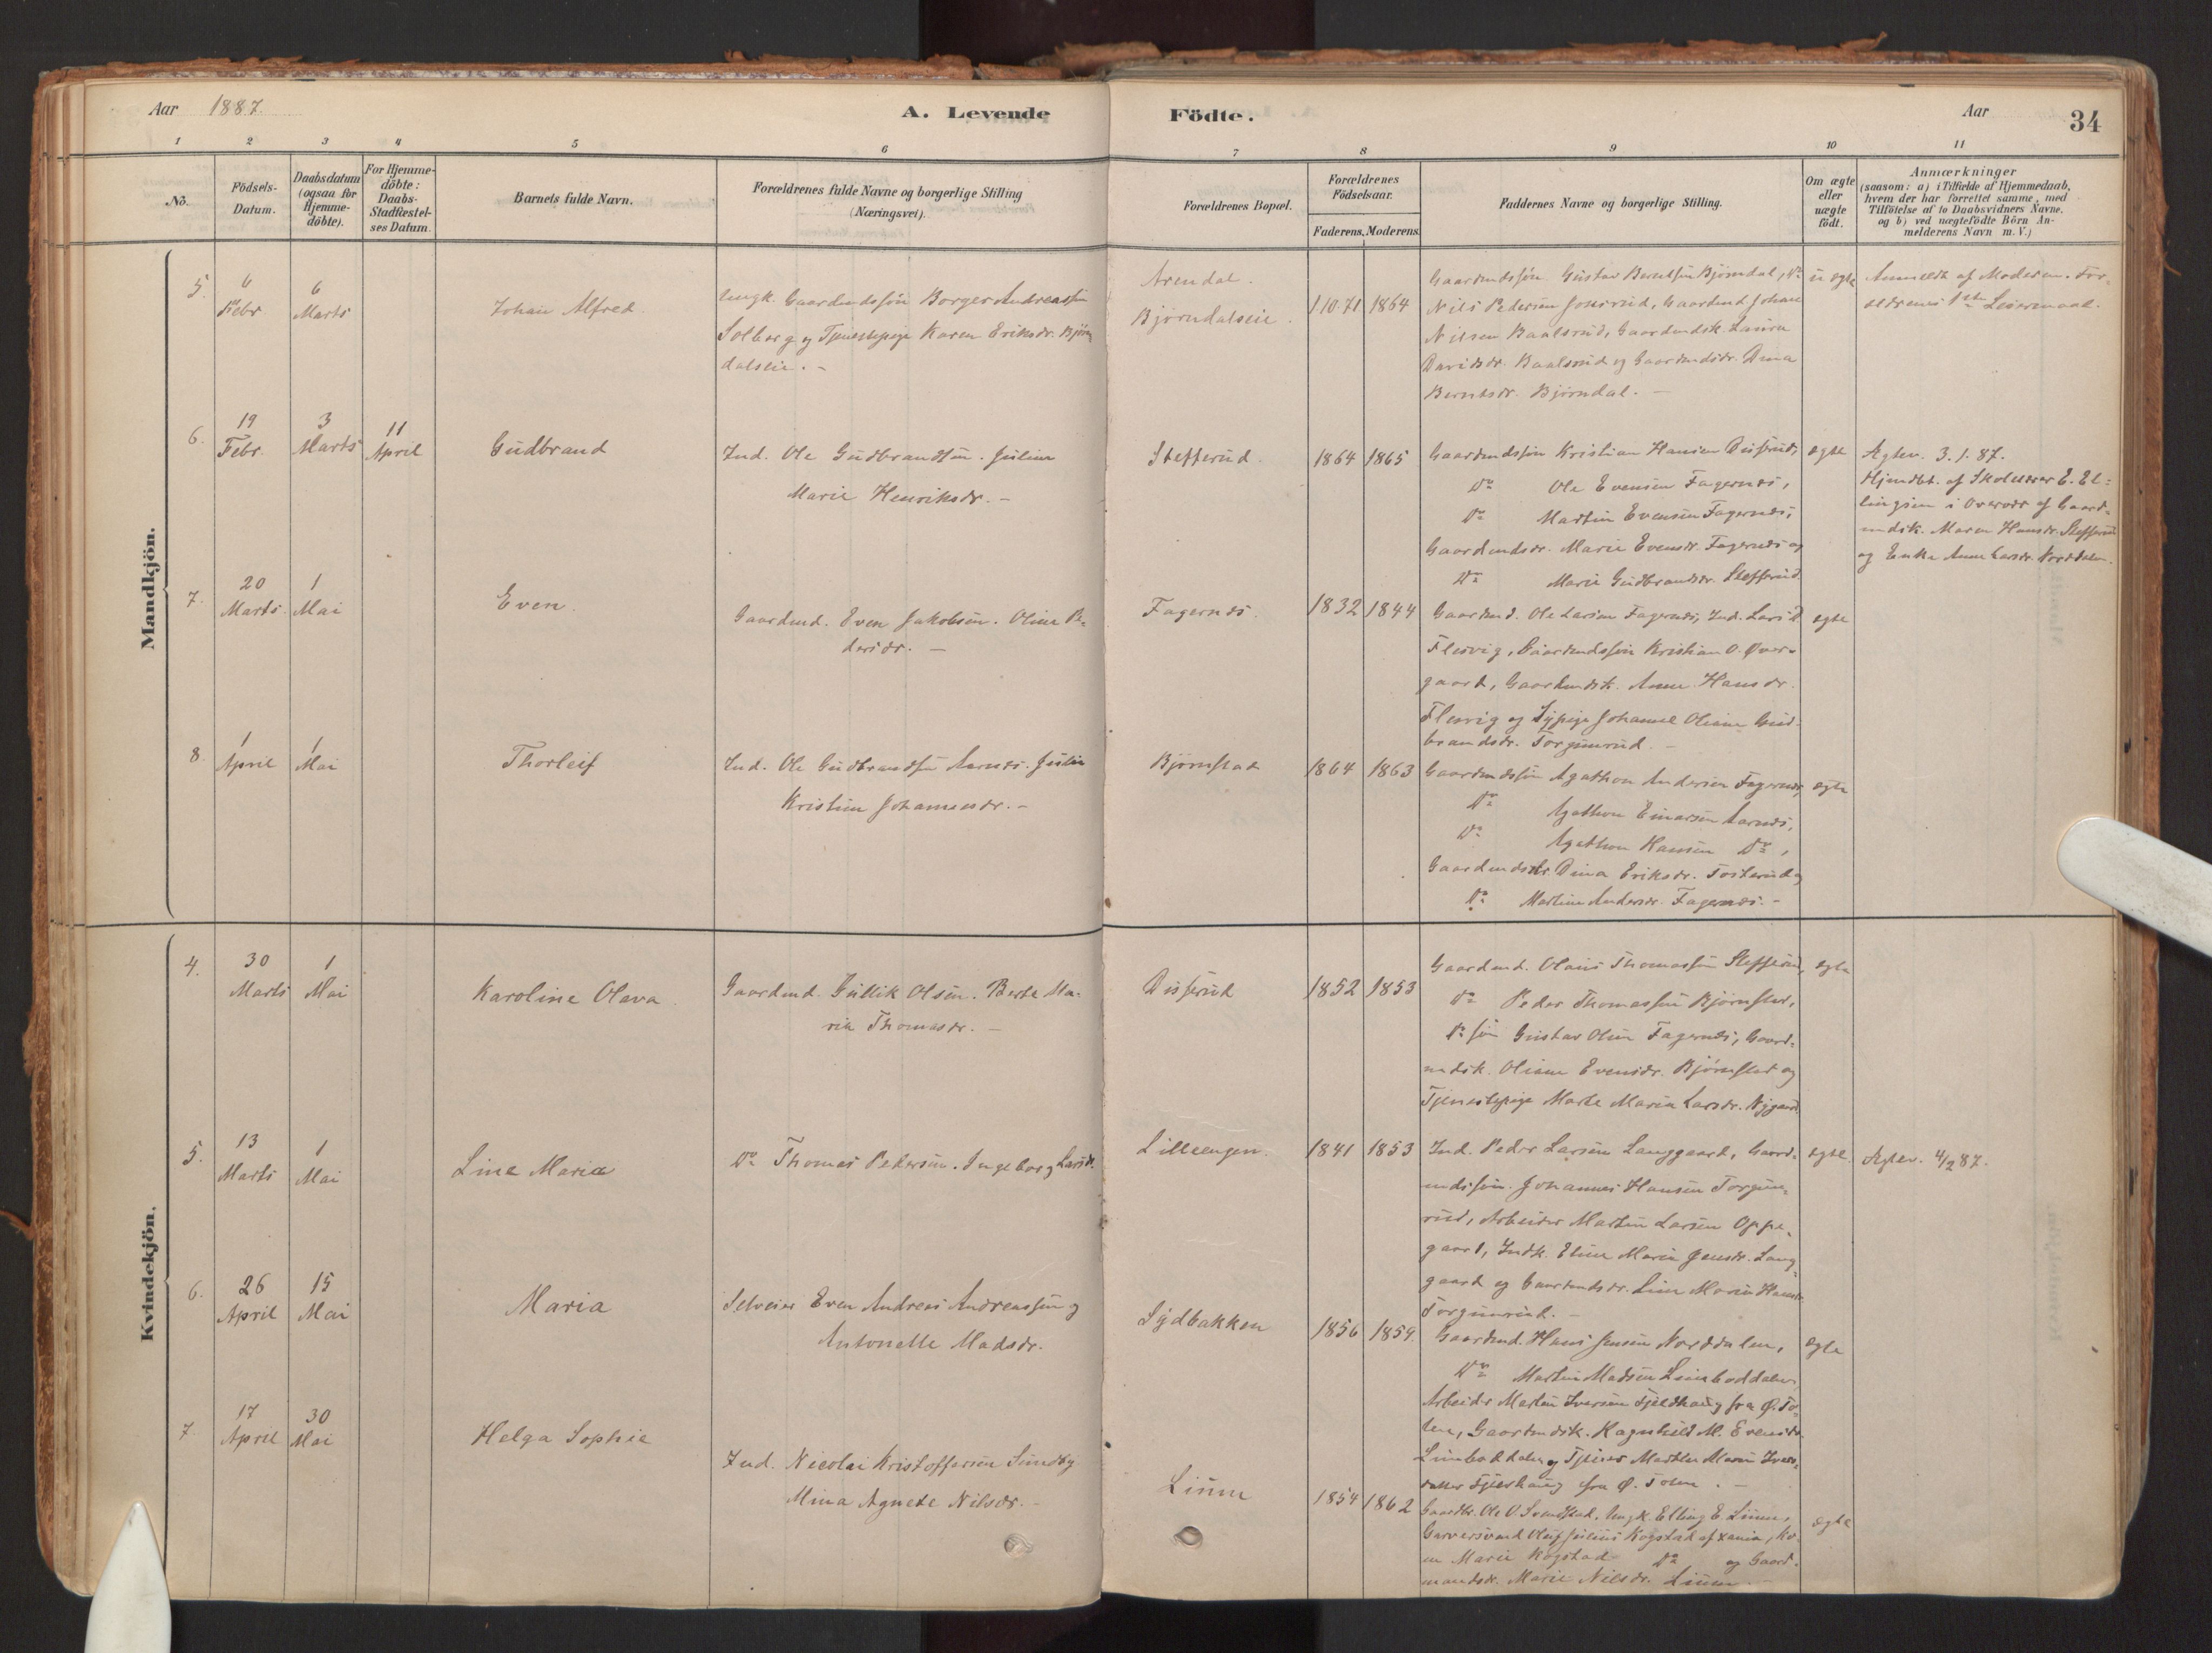 Aar 1887.
A. Levende
Födte.
Aar
34
1 2 3 4 5 6 7 8 9 10 11
No.
Födsels-
Datum.
Daabsdatum
(ogsaa for
Hjemme-
döbte).
For Hjemme-
döbte:
Daabs-
Stadfæstel-
ses Datum.
Barnets fulde Navn.
Forældrenes fulde Navne og borgerlige Stilling
(Næringsvei).
Forældrenes Bopæl.
Forældrenes
Födselsaar.
Faderens. Moderens.
Faddernes Navne og borgerlige Stilling.
Om ægte
eller
uægte
födt.
Anmærkninger
(saasom: a) i Tilfælde af Hjemmedaab,
hvem der har forrettet samme, med
Tilföielse af to Daabsvidners Navne.
og b) ved uægtefödte Börn An-
melderens Navn m. V.)
Mandkjön.
5.
6
Febr
6
Marts
Johan Alfred.
Ungk. Gaardmdssön Borger Andreassen
Solberg og Tjenestepige Karen Eriksdr. Björn
dalseie. -
Arendal.
Bjørndalseie.
1864
Gaardmdssön Gustav Berntsen Bjørndal, Do
Nils Pedersen Gaardmd. Johan
Nilsen Baalsrud, Gaardmdsk. Laura
Davidsdr. Baalsrud og Gaardmdsdr. Dina
Berntsdr. Bjørndal. -
uægte
Anmeldt af Moderen. For-
ældrenes 1ste Leiermaal.
6.
19
Febr.
3
Marts
11
April
Gudbrand
Ind. Ole Gudbrandsen. Juline
Marie Henriksdr. -
Stefferud
1864 1865
Gaardmdssön Kristian Hansen Disserud,
Do Ole Evensen Fagernæs,
Do Martin Evensen Fagernæs,
Gaardmdsdr. Marie Evensdr. Fagernæs og
Do Marie Gudbrandsdr. Stefferud.
ægte
Ægtev. 3.1.87.
Hjemdbt. af Skolelærer E. El-
lingsen i Overvær af Gaard-
mdsk. Maren Hansdr. Stefferud
og Enke Anne Larsdr. Norddalen.
7.
20
Marts
1
Mai
Even.
Gaardmd. Even Jakobsen. Oline Pe-
dersdr. -
Fagernæs.
1832 1844
Gaardmd. Ole Larsen Fagernæs, Ind. Lars
Flesvig, Gaardmdssön Kristian O. Øver-
gaard, Gaardmdsk. Anne Hansdr.
Flesvig og Sypige Johanne Oliane Gud-
brandsdr. Torgunrud. -
ægte
8
1
April
1
Mai
Thorleif
Ind. Ole Gudbrandsen Aarnæs. Julie
Kristine Johannesdr. -
Bjørnstad
1864 1863
Gaardmdssön Agathon Andersen Fagernæs,
Do Agathon Einarsen Aarnæs,
Do Agathon Hansen Do,
Gaardmdsdr. Dina Eriksdr. Tosterud og
Do Martine Andersdr. Fagernæs. -
ægte
Kvindekjön.
4.
30
Marts
1
Mai
Karoline Olava.
Gaardmd. Gullik Olsen. Berte Ma-
rie Thomasdr. -
Disserud
1852 1853
Gaardmd. Olaus Thomassen Stefferud,
Do Peder Thomassen Bjørnstad,
Do sön Gustav Olsen Fagernæs, Gaard-
mdsk. Oliane Evensdr. Bjørnstad og
Tjenestepige Marte Marie Larsdr. Nygaard
ægte
5.
13
Marts
1
Mai
Line Marie
Do Thomas Pedersen. Ingeborg Larsdr.
Lilleengen.
1841 1853
Ind. Peder Larsen Langgaard, Gaard-
mdssön. Johannes Hansen Torgun-
rud, Arbeider Martin Larsen Oppe-
gaard, Indk. Eline Marie Jensdr. Lang-
gaard og Gaardmdsdr. Line Marie Hansdr.
Torgunrud. -
ægte.
Ægtev. 4/2 87.
6.
26
April
15
Mai
Maria
Selveier Even Andreas Andreassen og
Antonette Madsdr.
Sydbakken
1856 1859.
Gaardmd. Hans Jensen Norddalen,
Do Martin Madsen Limboddalen,
Arbeider Martin Iversen Fjeldhaug fra Ø. To-
ten, Gaardmdsk. Ragnhild M. Evensdr.
Limboddalen og Marthe Marie Ivers-
datter Fjeldhaug fra Ø. Toten. -
ægte
7.
17
April
30
Mai
Helga Sophie
Ind. Nicolai Kristoffersen Sundby
Mina Agnete Nilsdr. -
Linne
1854 1862
Gaardbr. Ole O. Svendstad, Ungk. Elling E. Linne,
Garversvend Oluf Julius Kogstad af Xania, Ko-
ne Marie Kogstad Do og Gaard-
mandsdr. Marie Nilsdr. Linne. -
ægte